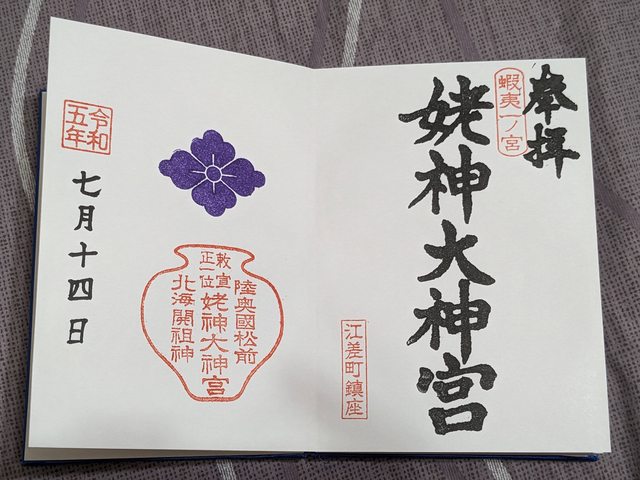 奉拝
蝦夷一ノ宮
姥神大神宮
江差町鎮座
陸奥國松前
敕宣
正一位
姥神大神宮
北海開祖神
令和
五年
七月十四日